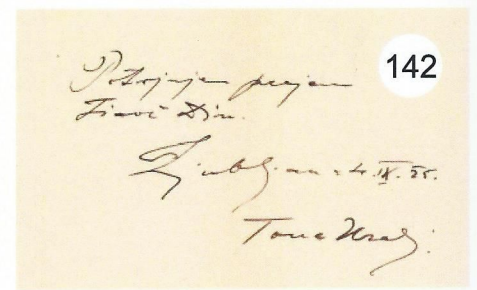 142
Potrjujem prejem
Tisoč Din.
Ljubljana 4. IX. 25.
Tone Kralj.